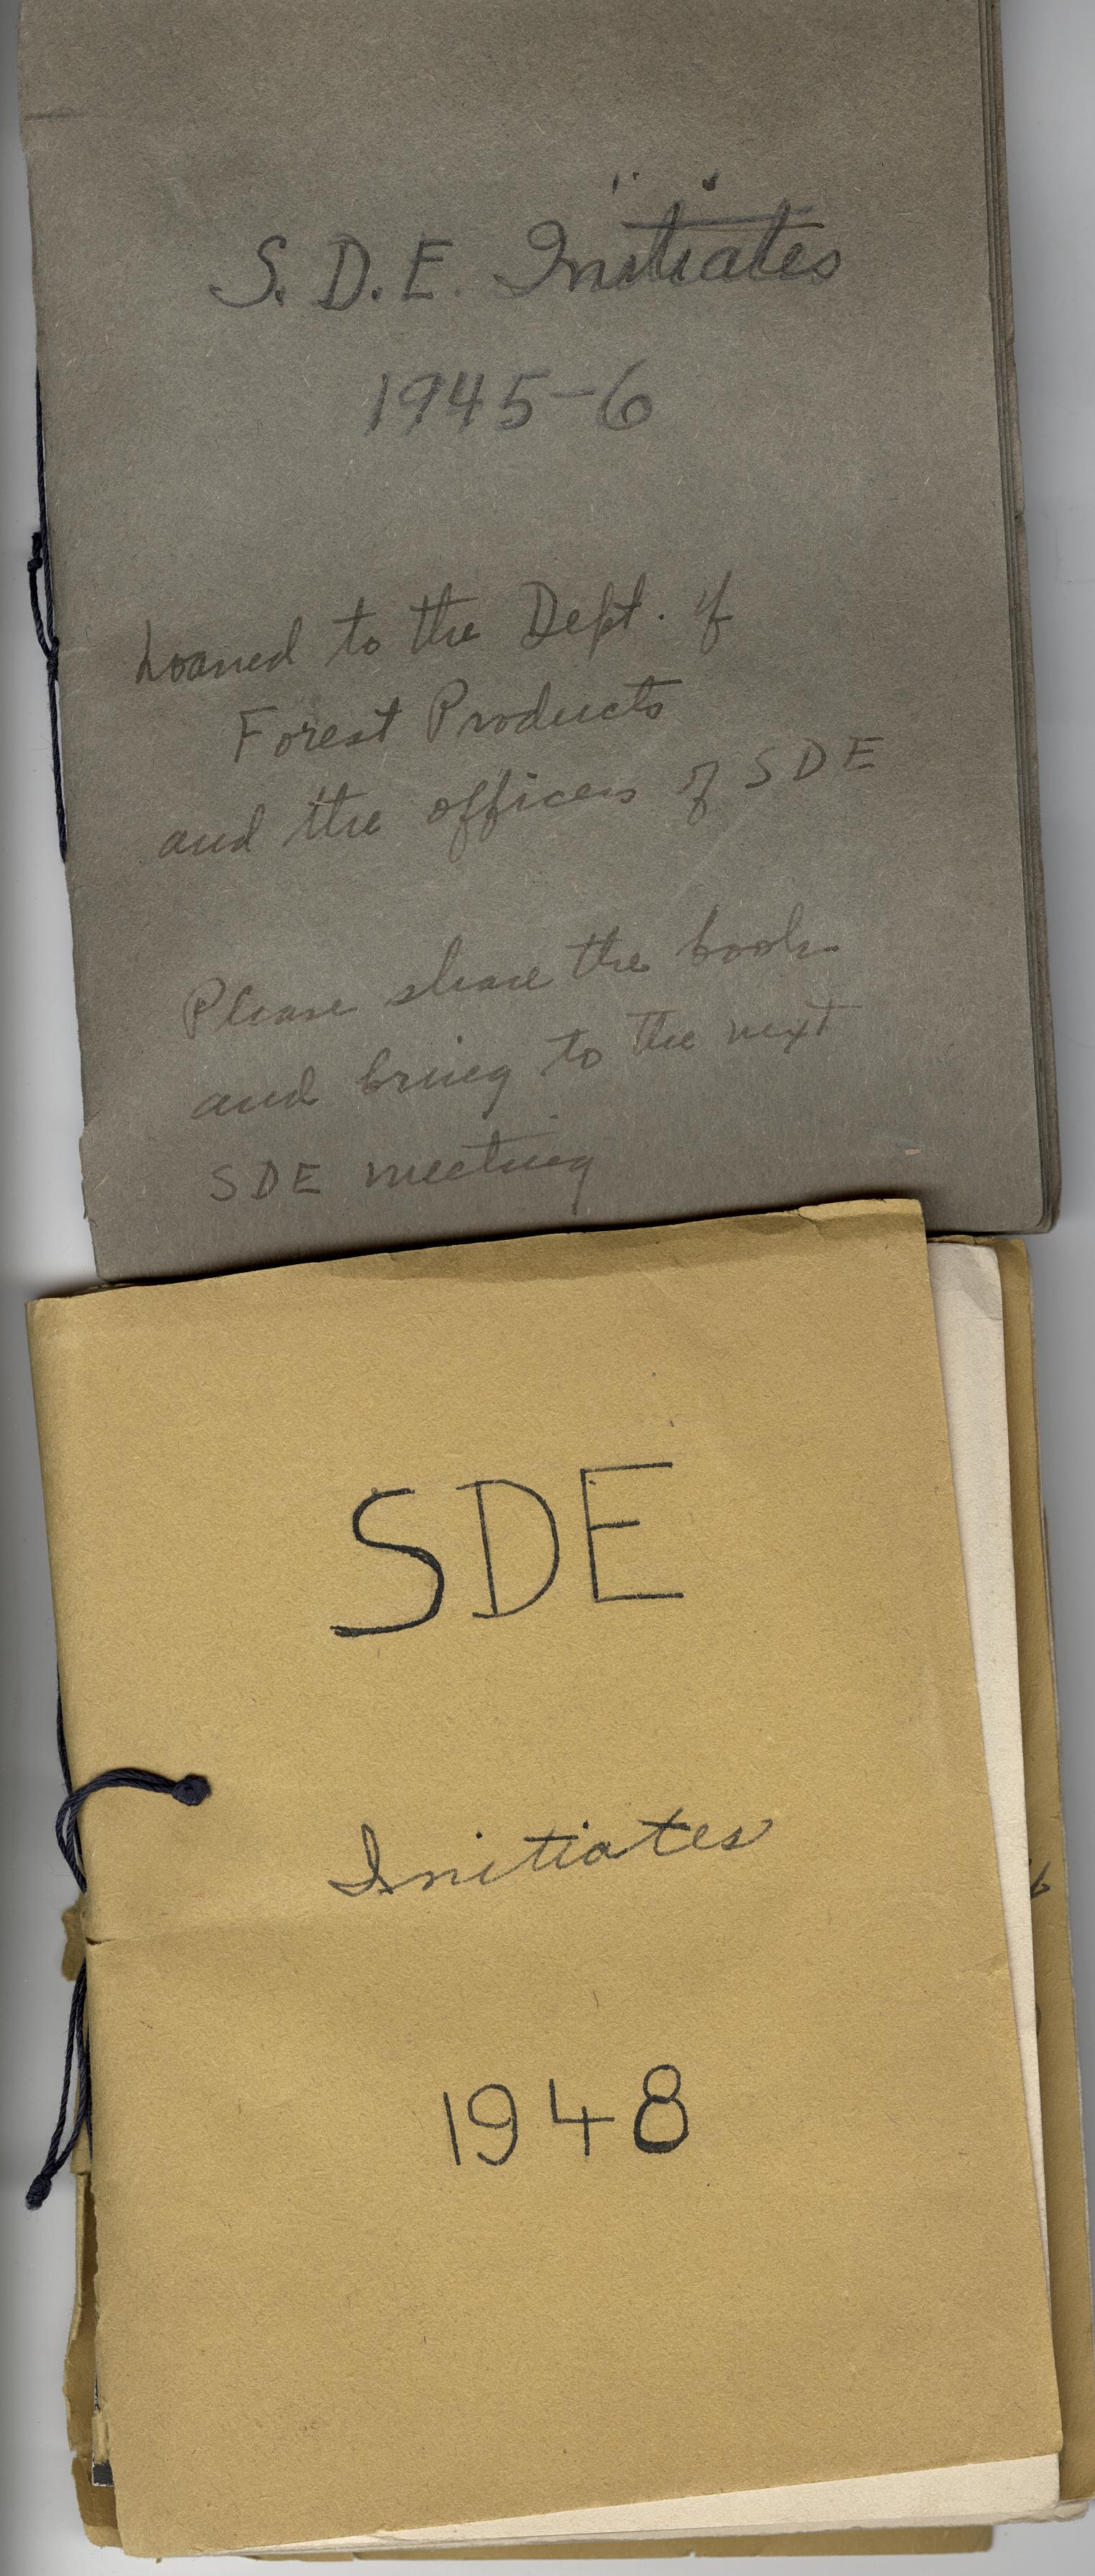 S. D. E. Initiates
1945-6
Loaned to the Dept. of
Forest Products
and the officers of SDE
Please share the book
and bring to the next
SDE meeting
SDE
Initiates
1948